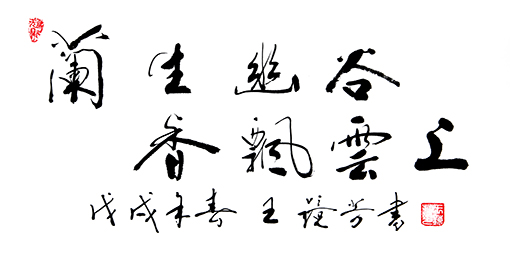 蘭生幽谷
香飄雲上
戊戌年春王鏡芳書